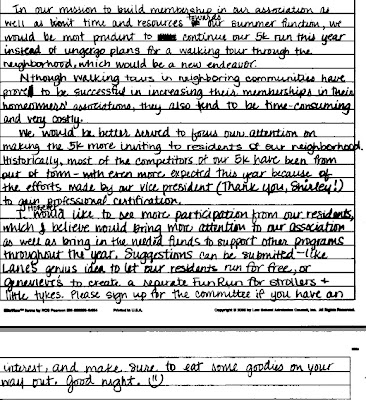 In our mission to build membership in our association as
well as limit time and resources towards our summer function, we
would be most prudent to continue our 5k run this year
instead of undergo plans for a walking tour through the
neighborhood, which would be a new endeavor.
Although walking tours in neighboring communities have
proved to be successful in increasing their memberships in their
homeowners' associations, they also tend to be time-consuming
and very costly.
We would be better served to focus our attention on
making the 5k more inviting to residents of our neighborhood.
Historically, most of the competitors of our 5k have been from
out of town - with even more expected this year because of
the efforts made by our vice president (Thank you, Shirley!)
to gain professional certification.
I would like to see more participation from our residents,
which I believe would bring more attention to our association
as well as bring in the needed funds to support other programs
throughout the year. Suggestions can be submitted - like
Lane's genius idea to let our residents run for free, or
Genevieve's to create a separate Fun Run for strollers +
little tykes. Please sign up for the committee if you have an
Printed in U.S.A.
interest, and make sure to eat some goodies on your
way out. Good night. (")